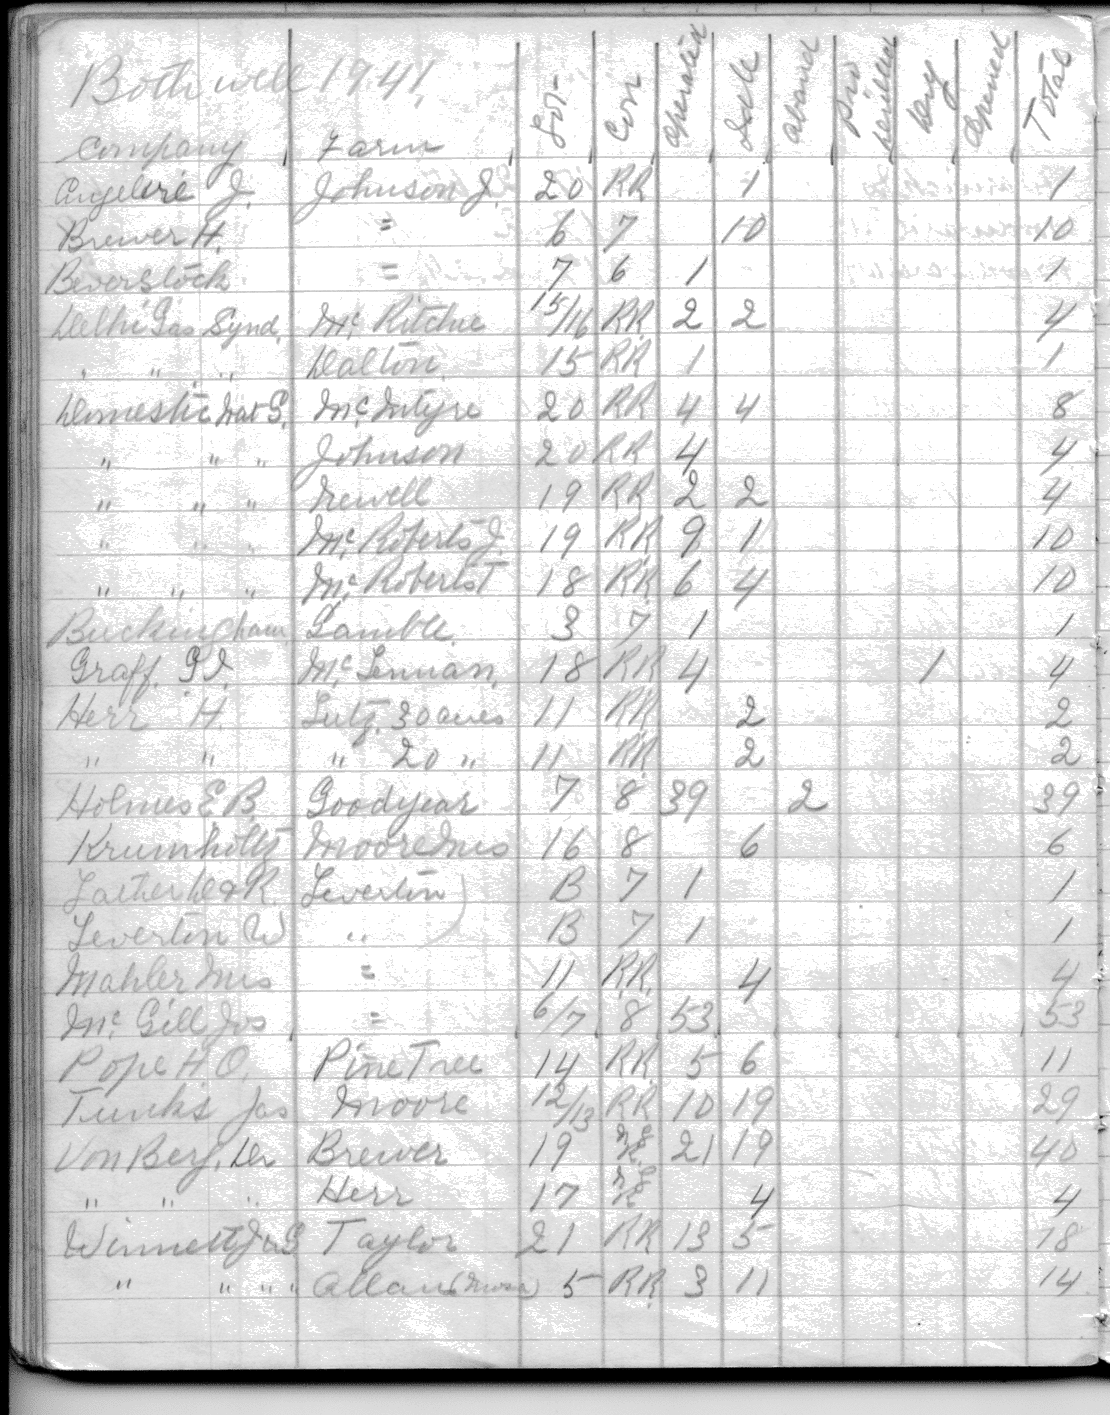 Bothwell 1941.
Company Farm Lot Con Operated Idle Aband Drilled Dry Total
Angelere J. Johnson J. 20 RR 1 1
Brewer H. " 6 7 10 10
Beverstock " 7 6 1 1
Delhi Gas Synd. Mc Ritchie 15/16 RR 2 2 4
" " " Dalton 15 RR 1 1
Domestic Nat G. Mc Intyre 20 RR 4 4 8
" " " Johnson 20 RR 4 4
" " " Newell 19 RR 2 2 4
" " " Mc Roberts J. 19 RR 9 1 10
" " " Mc Roberts T 18 RR 6 4 10
Buckingham Gamble. 3 7 1 1
Graff. Mc Lennan. 18 RR 4 1 4
Herr H. Lutz. 30 acres 11 RR 2 2
" " " 20 " 11 RR 2 2
Holmes E. B. Goodyear 7 8 39 2 39
Krumholtz Moore Mrs 16 8 6 6
Leverton B 7 1 1
Leverton W " B 7 1 1
Mahler Mrs " 11 RR. 4 4
Mc Gill Jos " 6/7 8 53 53
Pope H O. Pine Tree 14 RR 5 6 11
Tunks Jas Moore 12/13 RR 10 19 29
Von Berg. Dr Brewer 19 21 19 40
" " " Herr 17 4 4
Winnett Taylor 21 RR 13 5 18
" " " " Allan 5 RR 3 11 14